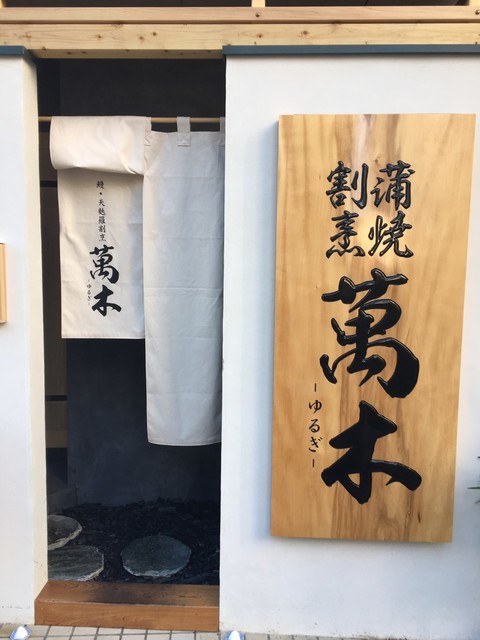 蒲焼
割烹
萬木
-ゆるぎ-
鰻・天麩羅割烹
萬木
-ゆるぎ-